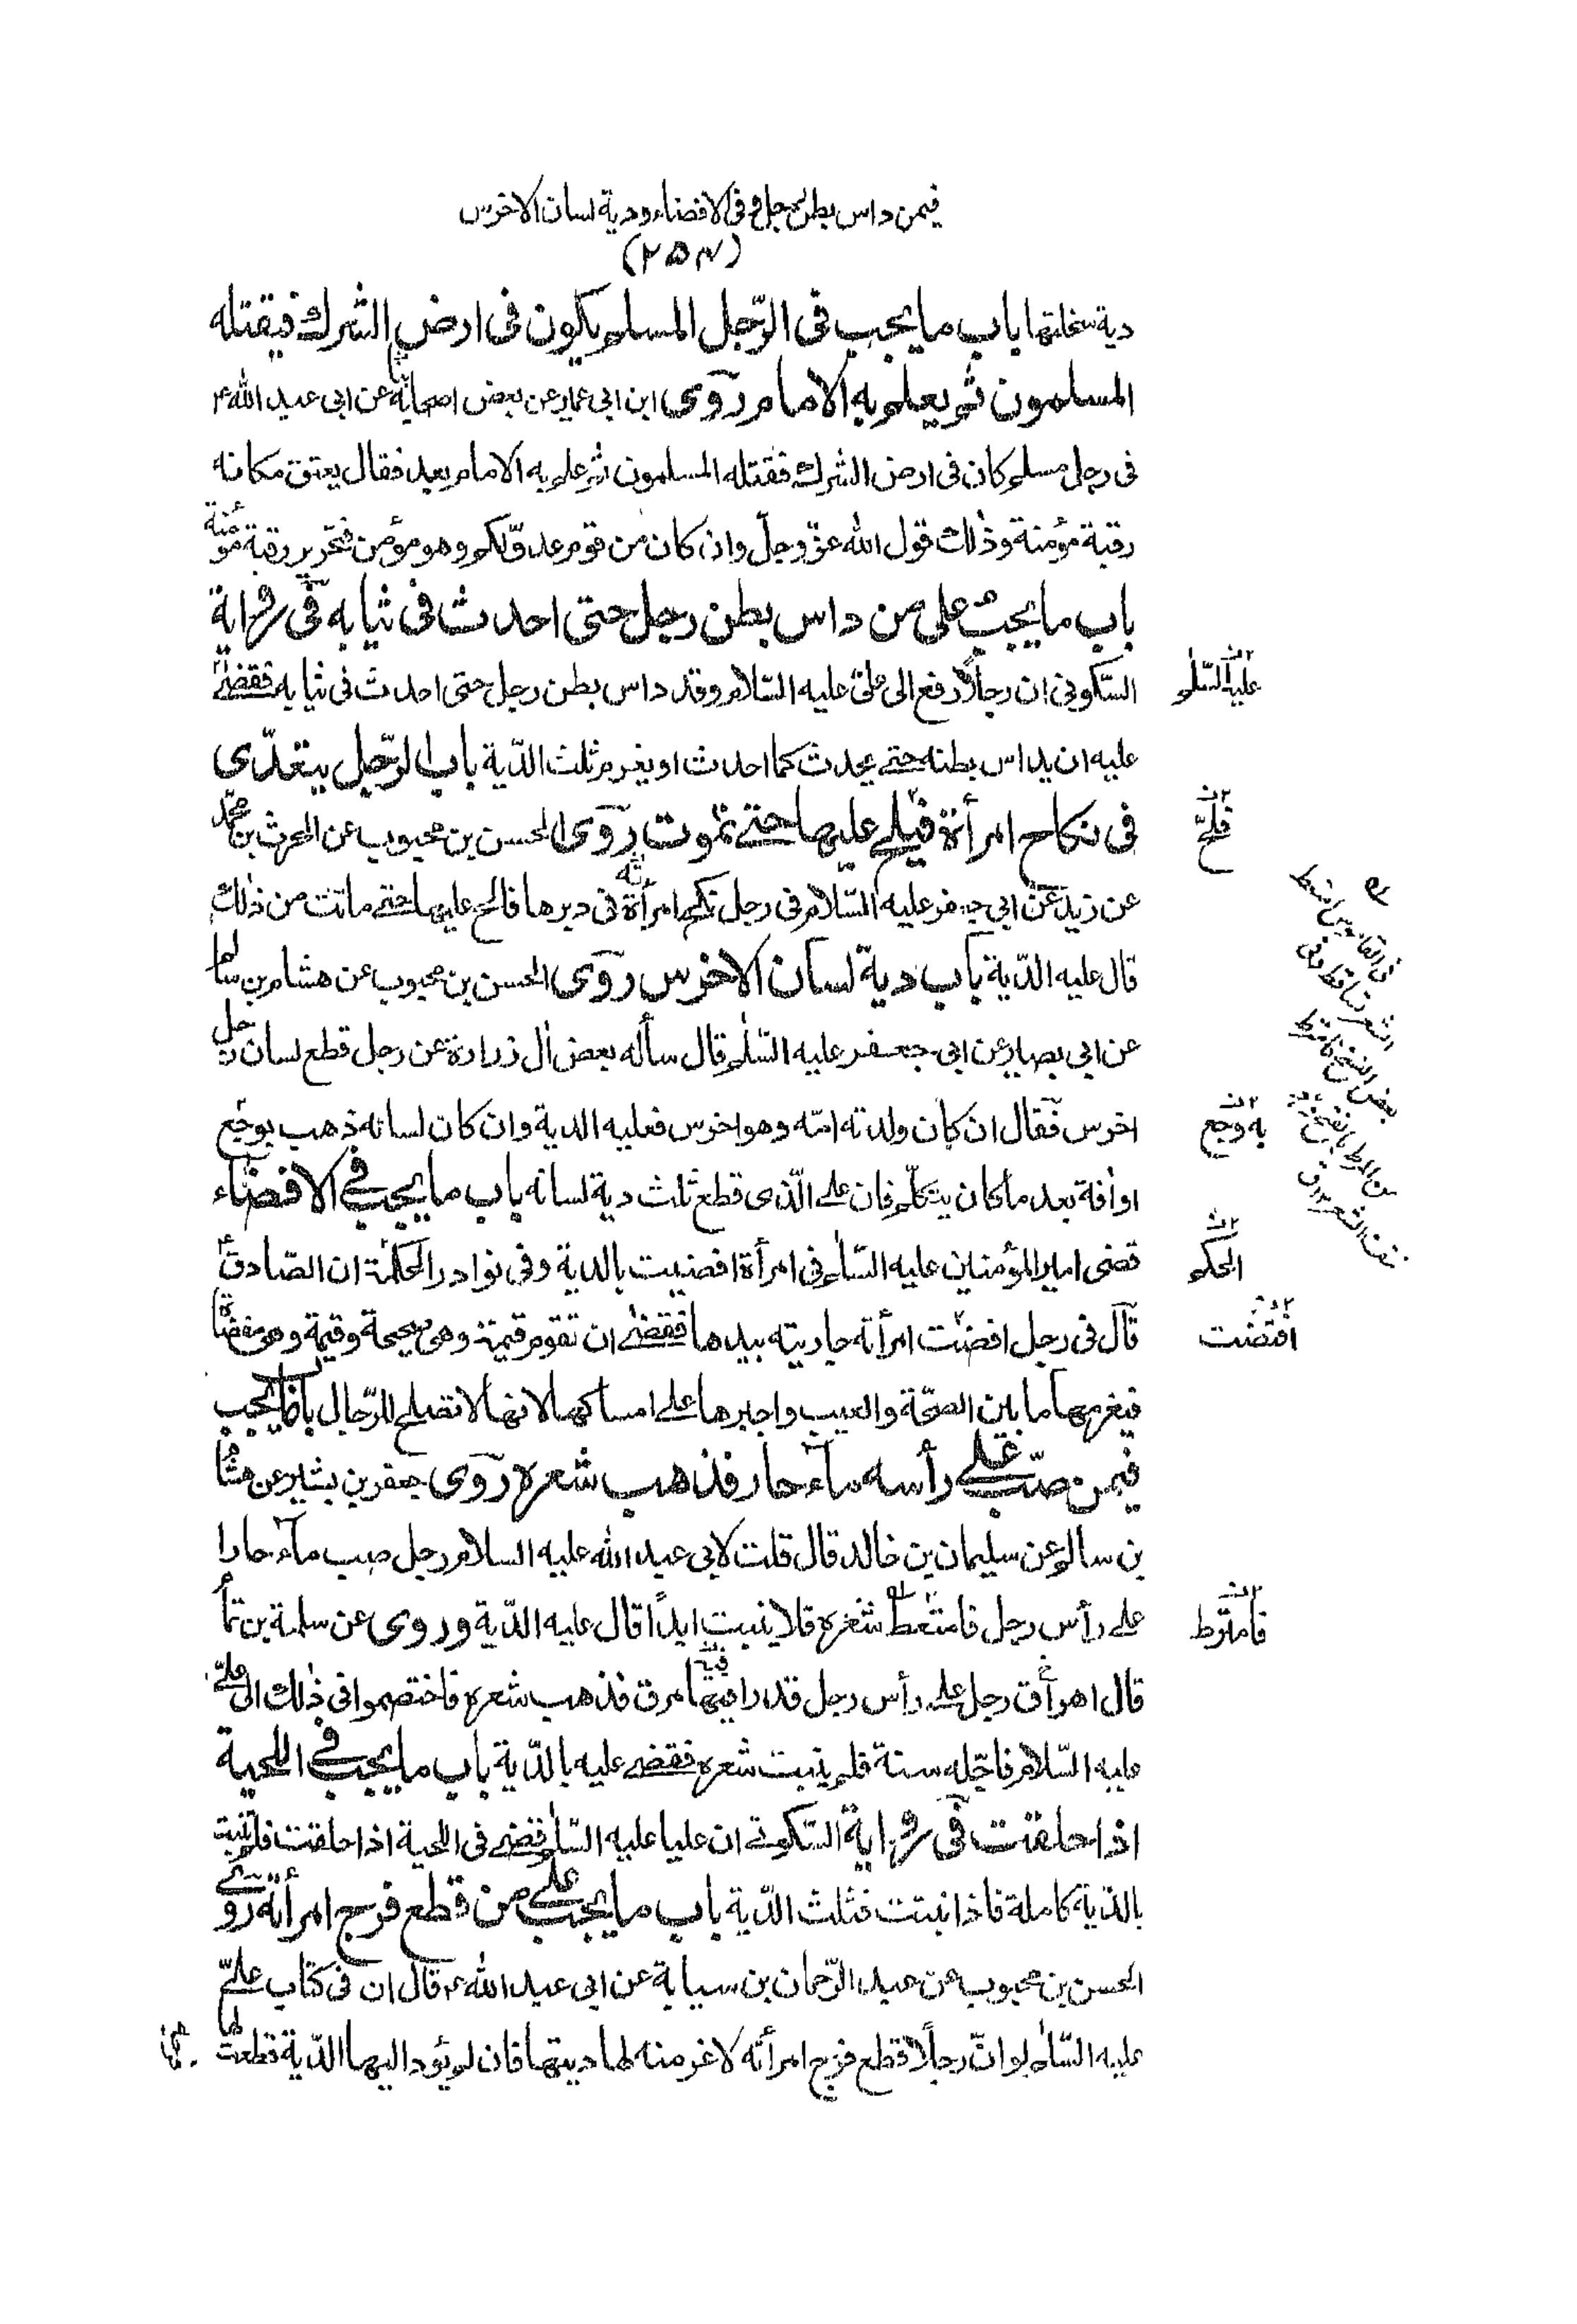 فيمن داس بطن رجل وفى الافضاء ودية لسان الاخرس
(٢٥٧)
دية سخلتها باب ما يجب فى الرّجل المسلم يكون فى ارض الشرك فيقتله
المسلمون ثم يعلم به الامام روى ابن ابى عمير عن بعض اصحابه عن ابى عبد الله ع
فى رجل مسلم كان فى ارض الشرك فقتله المسلمون ثم علم به الامام بعد فقال يعتق مكانه
رقبة مؤمنة وذلك قول الله عزّ وجلّ وان كان من قوم عدوّ لكم وهو مؤمن فتحرير رقبة مؤمنة
باب ما يجب على من داس بطن رجل حتى احدث فى ثيابه فى رواية
السّكونى ان رجلاً رفع الى علىّ عليه السّلام وقد داس بطن رجل حتى احدث فى ثيابه فقضى
عليه ان يداس بطنه حتى يحدث كما احدث او يغرم ثلث الدّية باب الرّجل يتعدّى
فى نكاح امرأة فيلح عليها حتى تموت روى الحسن بن محبوب عن الحرث بن محمّد
عن زيد عن ابى جعفر عليه السّلام فى رجل نكح امرأة فى دبرها فالح عليها حتى ماتت من ذلك
قال عليه الدّية باب دية لسان الاخرس روى الحسن بن محبوب عن هشام بن سالم
عن ابى بصير عن ابى جعفر عليه السّلم قال سأله بعض آل زرارة عن رجل قطع لسان رجل
اخرس فقال ان كان ولدته امّه وهو اخرس فعليه الدية وان كان لسانه ذهب بوجع
او آفة بعد ما كان يتكلّم فان على الّذى قطع ثلث دية لسانه باب ما يجب فى الافضاء
قضى امير المؤمنين عليه السّلم فى امرأة افضيت بالدية وفى نوادر الحكمة ان الصّادق ع
قال فى رجل افضت امرأته جاريته بيدها فقضى ان تقوم قيمة وهى صحيحة وقيمة وهى مفضاة
فيغرمها ما بين الصّحّة والعيب واجبرها على امساكها لانها لا تصلح للرّجال باب ما يجب
فيمن صبّ على رأسه ماء حار فذهب شعره روى جعفر بن بشير عن هشام
بن سالم عن سليمان بن خالد قال قلت لابى عبد الله عليه السلام رجل صب ماء حارا
على رأس رجل فامتعط شعره فلا ينبت ابداً قال عليه الدّية وروى عن سلمة بن تمام
قال اهرأق رجل على رأس رجل قدرا فيها مرق فذهب شعره فاختصموا فى ذلك الى علىّ
عليه السّلام فاجّله سنة فلم ينبت شعره فقضى عليه بالدّية باب ما يجب فى اللحية
اذا حلقت فى رواية السّكونى ان عليا عليه السّلم قضى فى اللحية اذا حلقت فلم تنبت
بالدّية كاملة فاذا نبتت فثلث الدّية باب ما يجب على من قطع فرج امرأته روى
الحسن بن محبوب عن عبد الرّحمان بن سيابة عن ابى عبد الله ع قال ان فى كتاب علىّ
عليه السّلم لو انّ رجلاً قطع فرج امرأته لاغرمنه لها ديتها فان لم يؤد اليها الدّية قطعت لها
عليه السّلم
فلحّ
به وجع
الحكم
افتضت
فامترط